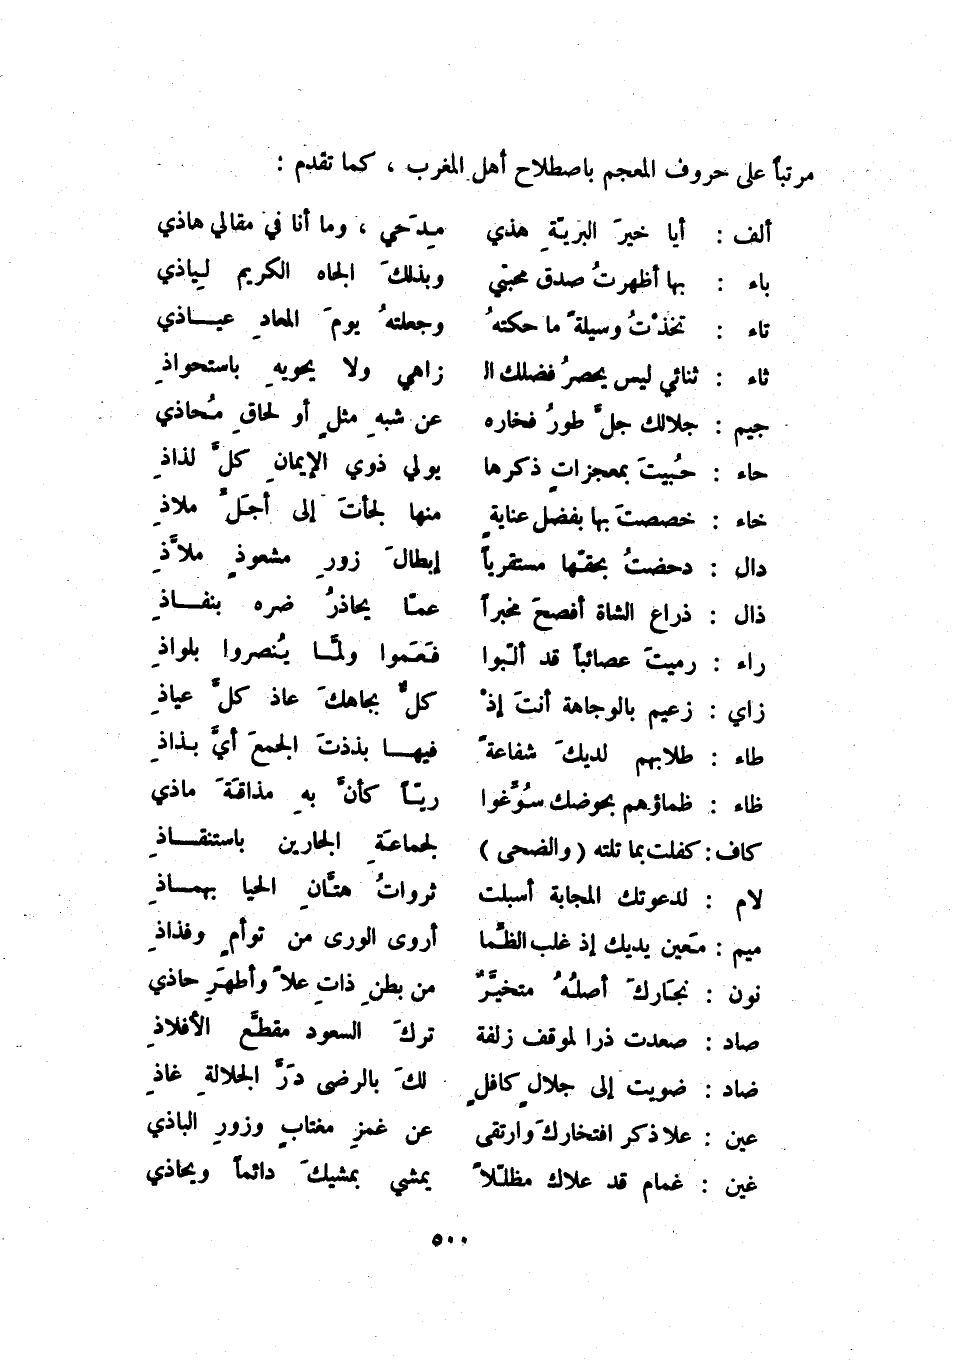 مرتباً على حروف المعجم باصطلاح أهل المغرب ، كما تقدم :
ألف : أيا خيرَ البريّةِ هذي مِدَحي ، وما أنا في مقالي هاذي
باء : بها أظهرتُ صدق محبتي وبذلكَ الجاه الكريم لِياذي
تاء : تخذْتُ وسيلةً ما حكتهُ وجعلتهُ يومَ المعادِ عيـاذي
ثاء : ثنائي ليس يحصرُ فضلك الـ زاهي ولا يحويهِ باستحواذِ
جيم : جلالك جلَّ طورُ فخاره عن شبهِ مثلٍ أو لحاقِ مُحاذي
حاء : حُبيتَ بمعجزاتٍ ذكرها يولي ذوي الإيمانِ كلَّ لذاذِ
خاء : خصصتَ بها بفضل عنايةٍ منها لجأتَ إلى أجَلِّ ملاذِ
دال : دحضتُ بحقّها مستقرياً إبطالَ زورِ مشعوذٍ ملاَّذِ
ذال : ذراع الشاة أفصحَ مخبراً عمّا يحاذرُ ضره بنفـاذِ
راء : رميتَ عصائباً قد ألّبوا فعَموا ولمَّـا يُنصروا بلواذِ
زاي : زعيم بالوجاهة أنتَ إذْ كلٌّ بجاهكَ عاذ كلَّ عياذِ
طاء : طلابهم لديكَ شفاعةً فيهـا بذذتَ الجمعَ أيَّ بـذاذِ
ظاء : ظماؤهم بحوضك سُوِّغوا ريّـاً كأنَّ بهِ مذاقَةَ ماذي
كاف : كفلت بما تلته ( والضحى ) لجماعةِ الجارين باستنقـاذِ
لام : لدعوتك المجابة أسبلت ثرواتُ هتَّانِ الحيا بهمـاذِ
ميم : مَعين يديك إذ غلب الظَّما أروى الورى من توأمٍ وفذاذِ
نون : نجارَكَ أصلُهُ متخيَّرٌ من بطنِ ذاتِ علاً وأطهرِ حاذي
صاد : صعدت ذرا لموقف زلفة تركَ السعود مقطَّع الأفلاذِ
ضاد : ضويت إلى جلالٍ كافلٍ لكَ بالرضى دَرَّ الجلالةِ غاذِ
عين : علا ذكر افتخاركَ وارتقى عن غمزِ مغتابٍ وزورِ الباذي
غين : غمام قد علاك مظلّلاً يمشي بمشيكَ دائماً ويحاذي
٥٠٠